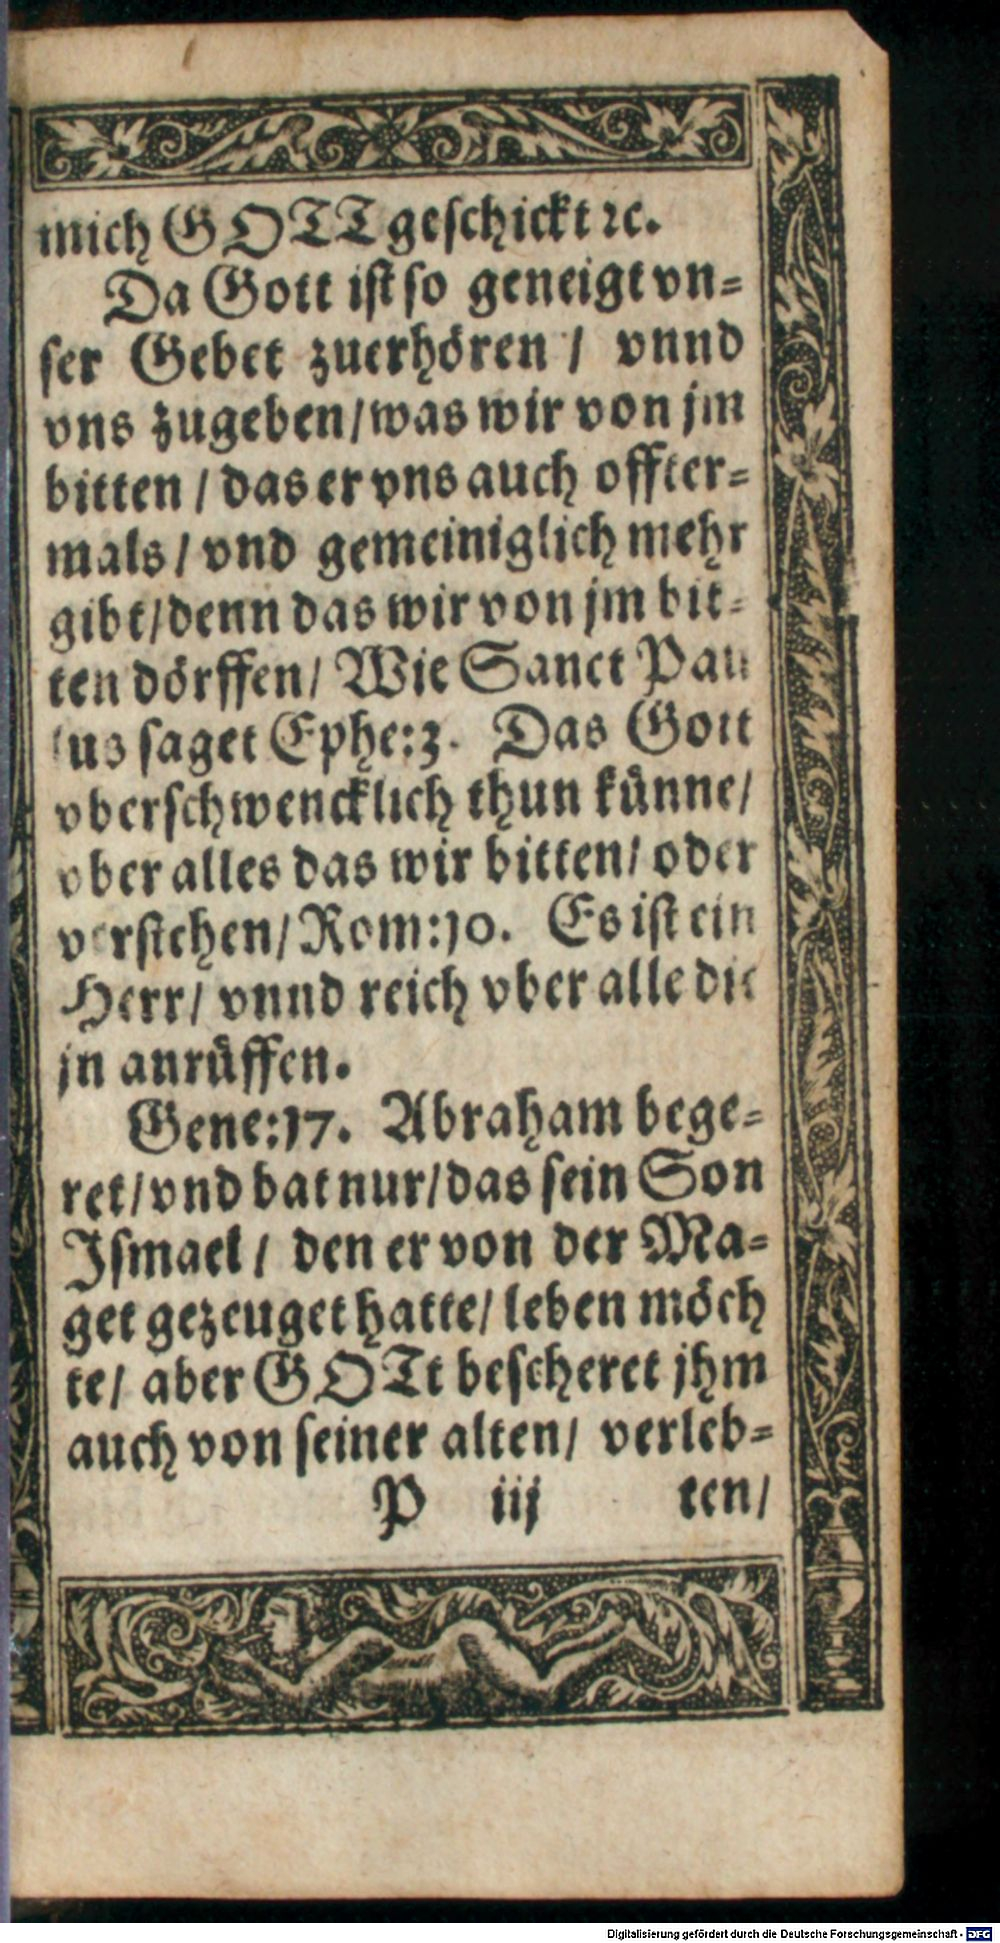 mich GOTT geschickt ꝛc.
Da Gott ist so geneigt vn=
ser Gebet zuerhören / vnnd
vns zugeben / was wir von jm
bitten / das er vns auch offter=
mals / vnd gemeiniglich mehr
gibt / denn das wir von jm bit=
ten dörffen / Wie Sanct Pau
lus saget Ephe:3. Das Gott
vberschwencklich thun künne /
vber alles das wir bitten / oder
verstehen / Rom:10. Es ist ein
Herr / vnnd reich vber alle die
jn anrüffen.
Gene:17. Abraham bege=
ret / vnd bat nur / das sein Son
Ismael / den er von der Ma=
get gezeuget hatte / leben möch
te / aber GOTt bescheret jhm
auch von seiner alten / verleb=
P iij ten /
Digitalisierung gefördert durch die Deutsche Forschungsgemeinschaft - DFG